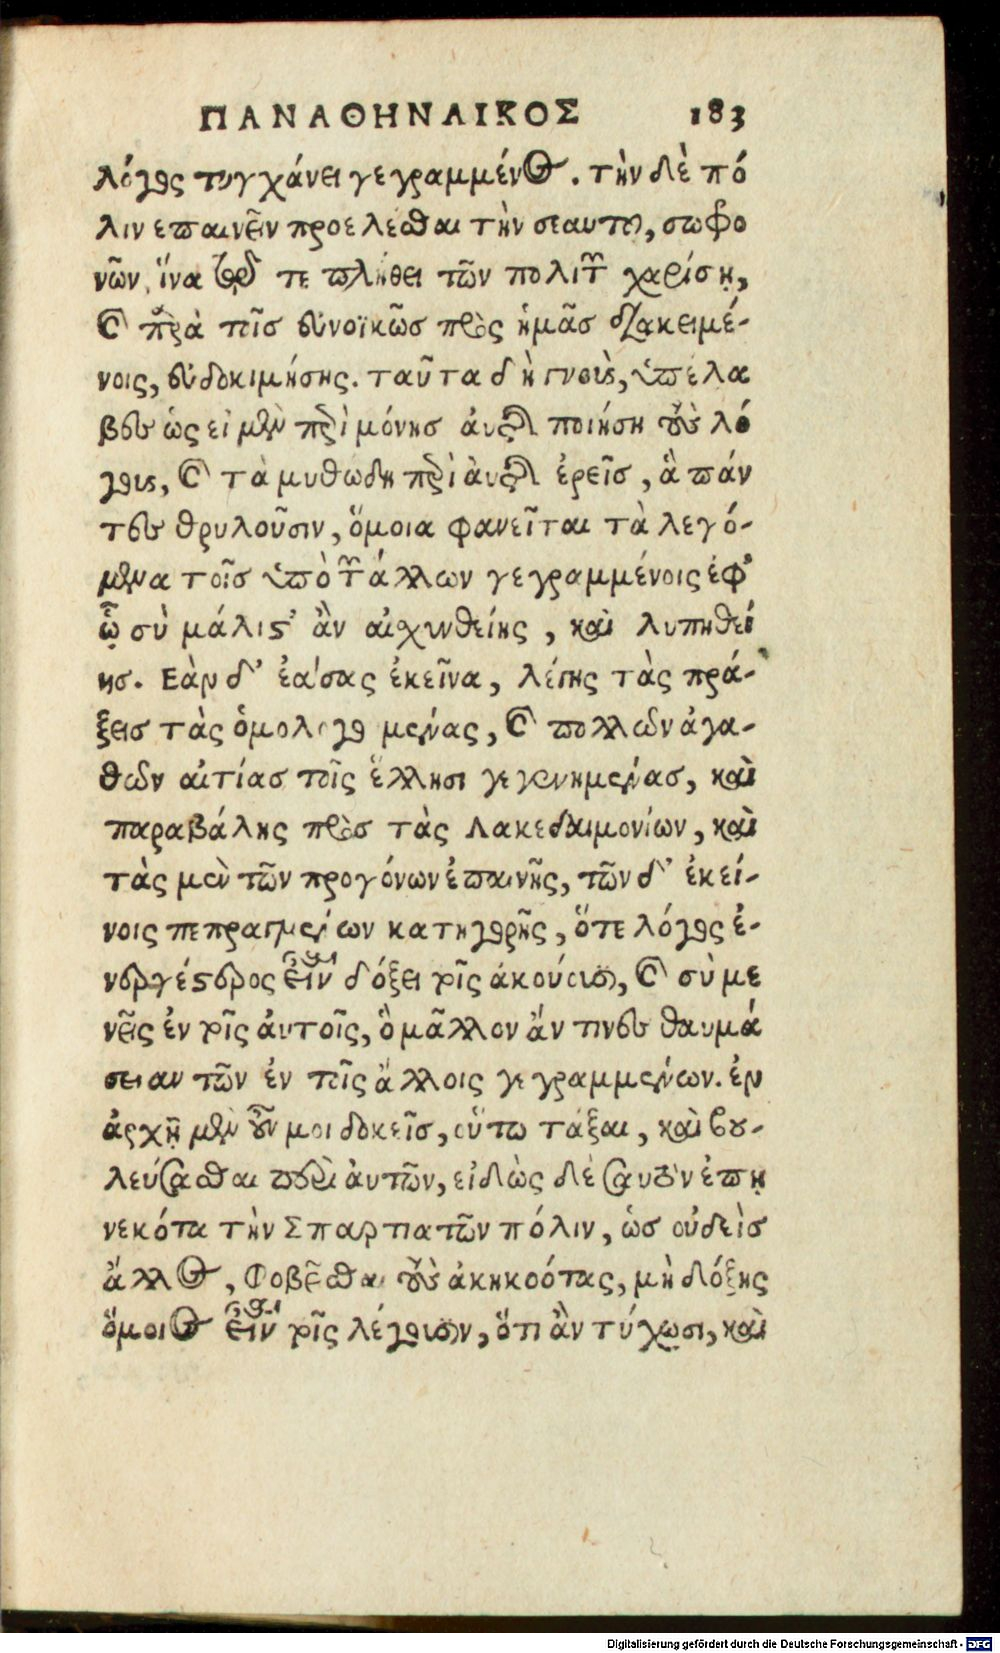 ΠΑΝΑΘΗΝΑΙΚΟΣ 183
λόγος τυγχάνει γεγραμμένος. τὴν δὲ πό
λιν ἐπαινεῖν προελέσθαι τὴν σεαυτοῦ, σωφρο
νῶν, ἵνα τῷ τε πλήθει τῶν πολιτῶν χαρίσῃ,
καὶ παρὰ τοῖς εὐνοϊκῶς πρὸς ἡμᾶς διακειμέ-
νοις, εὐδοκιμήσῃς. ταῦτα δὴ γνοὺς, ὑπέλα
βες ὡς εἰ μὲν περὶ μόνης αὐτῆς ποιήσῃ τοὺς λό
γους, καὶ τὰ μυθώδη περὶ αὐτῆς ἐρεῖς, ἃ πάν
τες θρυλοῦσιν, ὅμοια φανεῖται τὰ λεγό-
μενα τοῖς ὑπὸ τῶν ἄλλων γεγραμμένοις ἐφ'
ᾧ σὺ μάλιστ' ἂν αἰσχυνθείης, καὶ λυπηθεί
ης. Ἐὰν δ' ἐάσας ἐκεῖνα, λέγῃς τὰς πρά-
ξεις τὰς ὁμολογουμένας, καὶ πολλῶν ἀγα-
θῶν αἰτίας τοῖς ἕλλησι γεγενημένας, καὶ
παραβάλῃς πρὸς τὰς Λακεδαιμονίων, καὶ
τὰς μὲν τῶν προγόνων ἐπαινῇς, τῶν δ' ἐκεί-
νοις πεπραγμένων κατηγορῇς, ὅτε λόγος ἐ-
νεργέστερος εἶναι δόξει τοῖς ἀκούουσι, καὶ σὺ με
νεῖς ἐν τοῖς αὐτοῖς, ὃ μᾶλλον ἄν τινες θαυμά
σειαν τῶν ἐν τοῖς ἄλλοις γεγραμμένων. ἐν
ἀρχῇ μὲν οὖν μοι δοκεῖς, οὕτω τάξαι, καὶ βου-
λεύσασθαι περὶ αὐτῶν, εἰδὼς δὲ σαυτὸν ἐπῃ
νεκότα τὴν Σπαρτιατῶν πόλιν, ὡς οὐδεὶς
ἄλλος, Φοβεῖσθαι τοὺς ἀκηκοότας, μὴ δόξῃς
ὅμοιος εἶναι τοῖς λέγουσιν, ὅτι ἂν τύχωσι, καὶ
Digitalisierung gefördert durch die Deutsche Forschungsgemeinschaft - DFG